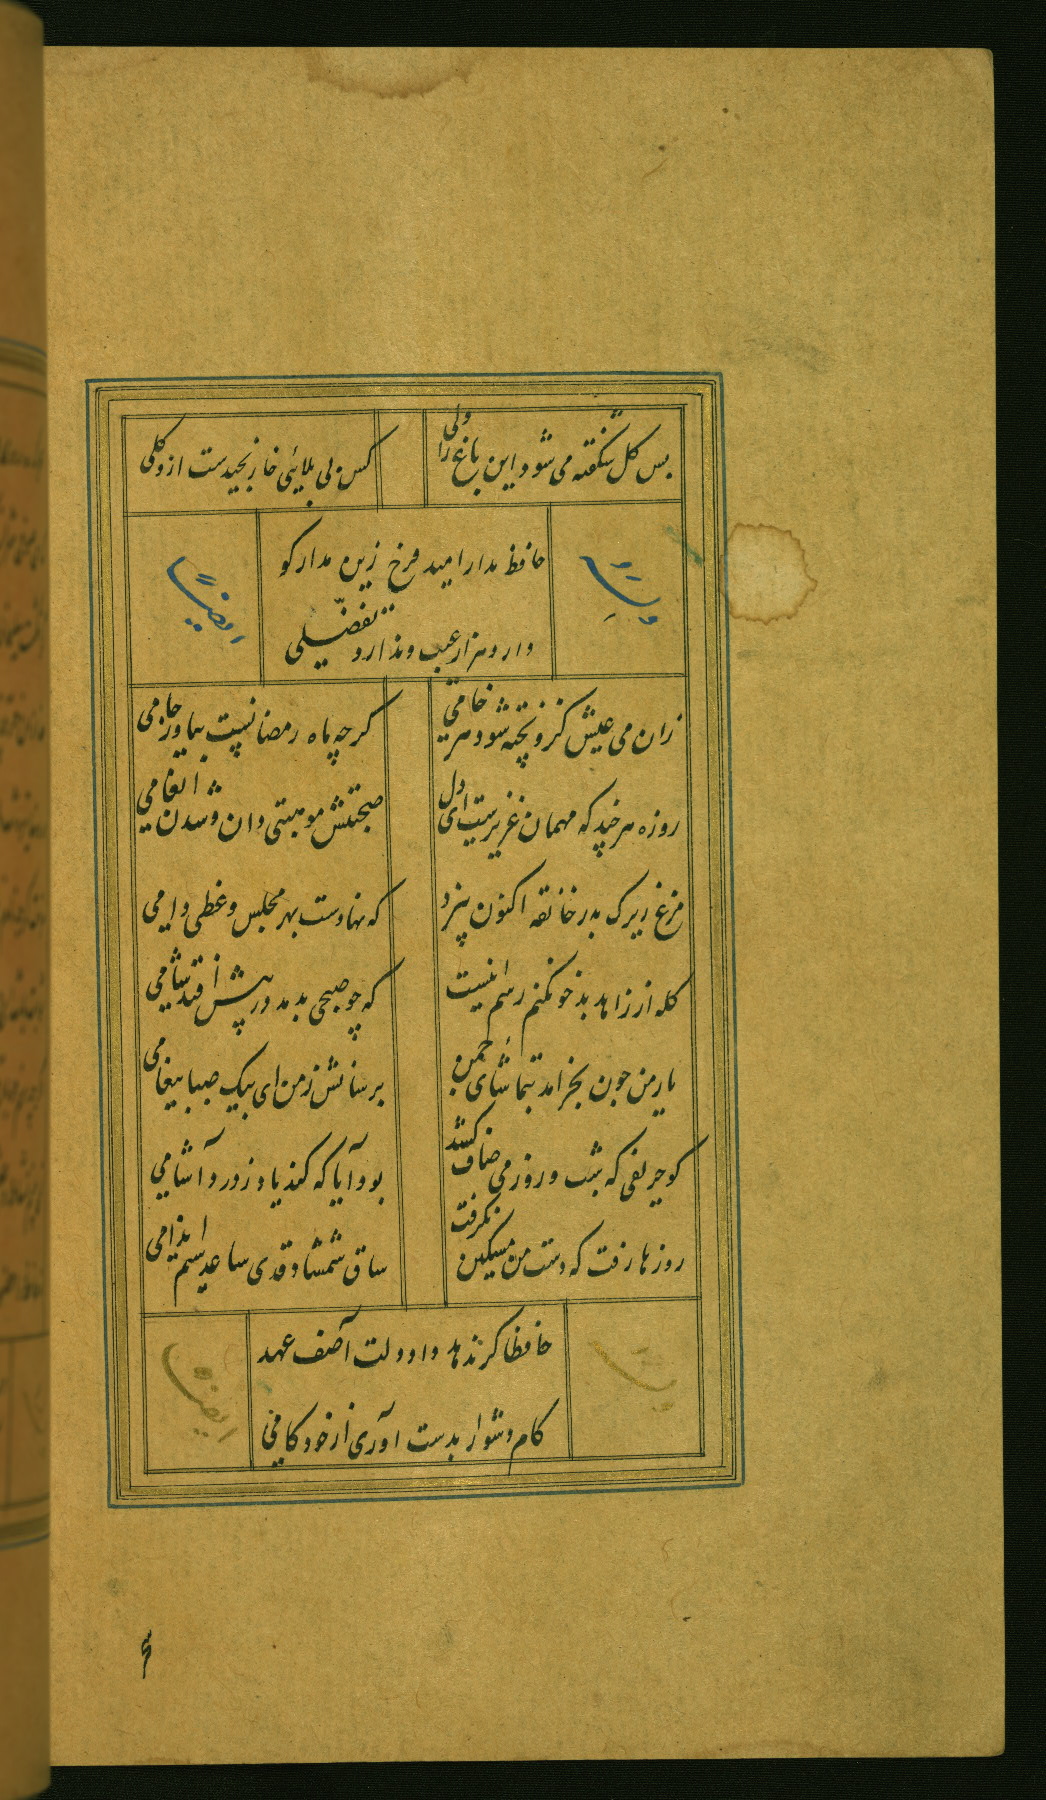 بس کل شکفته می شود این باغ را ولی
کس بی بلائی خار نچیدست ازو کلی
حافظ مدار امید فرخ زین مدار کو
دارد هزار عیب و ندارد تفضّلی
وله
ایضاً
زان می عیش کزو پخته شود هر خامی
کرچه ماه رمضانست بیاور جامی
روزه هرچند که مهمان عزیزست ای دل
صحبتش موهبتی دان و شدن انعامی
مرغ زیرک بدر خانقه اکنون نپرد
که نهادست بهر مجلس وعظی دامی
کله از زاهد بدخو نکنم رسم اینست
که چو صبحی بدمد در پیش افتد شامی
یار من چون بخرامد بتماشای چمن
برسانش ز من ای پیک صبا پیغامی
کو حریفی که شب و روز می صاف کشد
بود آیا که کند یاد ز درد آشامی
روزها رفت که دست من مسکین نکرفت
ساق شمشاد قدی ساعد سیم اندامی
حافظا کر ندهد داد دلت آصف عهد
کام دشوار بدست آوری از خود کامی
ایضاً